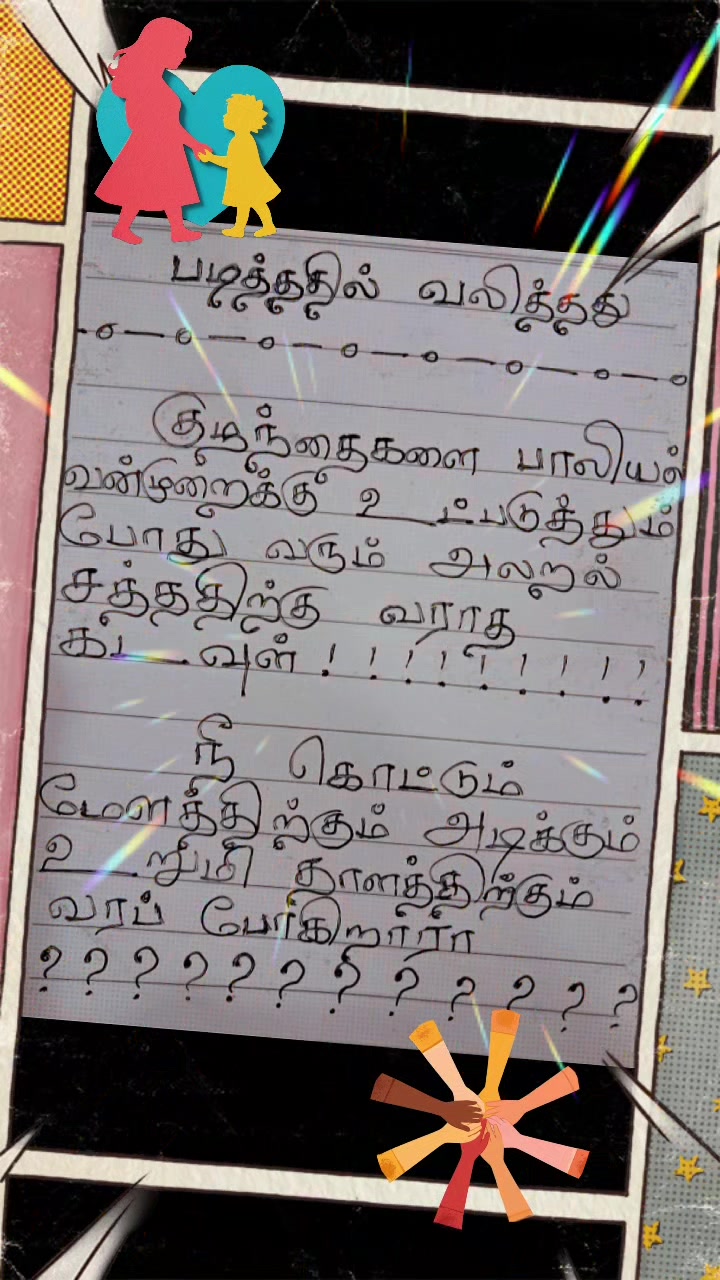 படித்ததில் வலித்தது
குழந்தைகளை பாலியல்
வன்முறைக்கு உட்படுத்தும்
போது வரும் அலறல்
சத்ததிற்கு வராத
கடவுள் ! ! ! ! ! ! ! ! ! !
நீ கொட்டும்
மேளத்திற்கும் அடிக்கும்
உறுமி தாளத்திற்கும்
வரப் போகிறார்ரா
? ? ? ? ? ? ? ? ? ? ? ?